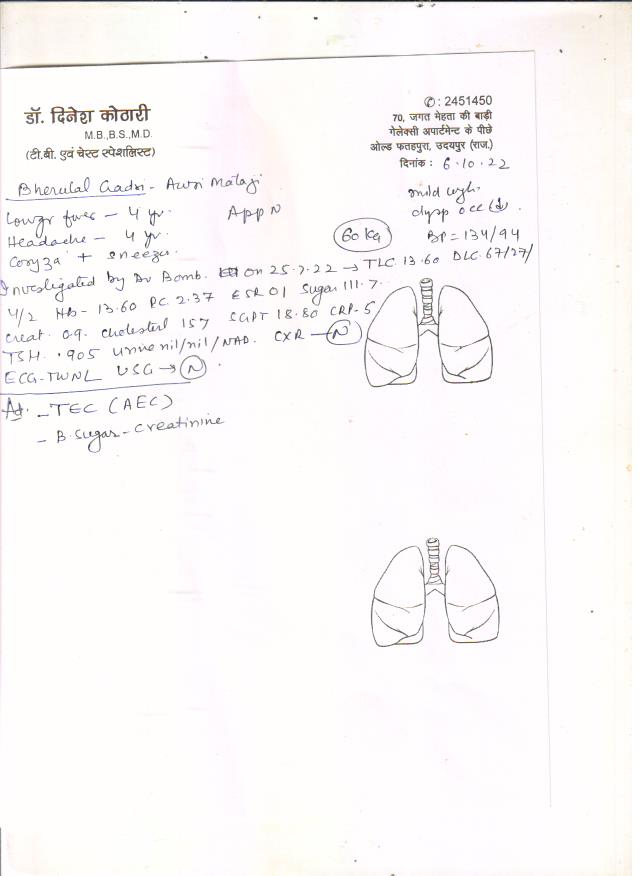 डॉ. दिनेश कोठारी
M.B.,B.S.,M.D.
(टी.बी. एवं चेस्ट स्पेशलिस्ट)
✆ : 2451450
70, जगत मेहता की बाड़ी
गेलेक्सी अपार्टमेन्ट के पीछे
ओल्ड फतहपुरा, उदयपुर (राज.)
दिनांक : 6.10.22
Bherulal Gadri - Mataji
mild cough.
4 yr. App N
dysp occ
Headache - 4 yr.
60 Kg BP = 134/94
Coryza + sneezes.
Investigated by Dr Bomb. on 25.7.22 → TLC. 13.60 DLC. 67/27/
4/2 Hb - 13.60 PC. 2.37 ESR 01 Sugar 111.7
Creat. 0.9. Cholesterol 157 SGPT 18.80 CRP-5
TSH. .905 Urine nil/nil/NAD. CXR - N
ECG-TWNL USG → N
Ad. - TEC (AEC)
- B. Sugar - Creatinine